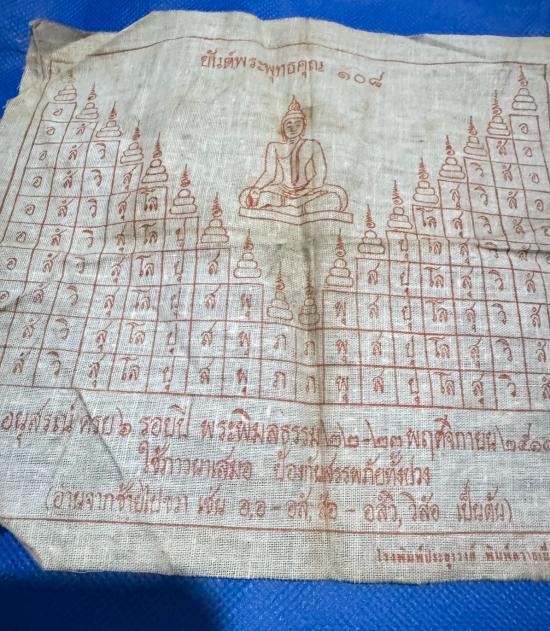 ยันต์พระพุทธคุณ ๑๐๘
อ อ
อ สั สั อ
อ สั วิ วิ สั อ
อ สั วิ สุ สุ วิ สั อ
อ สั วิ สุ โล โล สุ วิ สั อ
อ สั วิ สุ โล ปุ ปุ โล สุ วิ สั อ
อ สั วิ สุ โล ปุ ส ส ปุ โล สุ วิ สั อ
อ สั วิ สุ โล ปุ ส พุ พุ ส ปุ โล สุ วิ สั
สั วิ สุ โล ปุ ส พุ ภ ภ พุ ส ปุ โล สุ วิ สั
สั วิ สุ โล ปุ ส พุ ภ ภ พุ ส ปุ โล สุ วิ สั
อนุสรณ์ ๑ รอบปี พระพิมลธรรม ๒๒-๒๓ พฤศจิกายน
ใช้ภาวนาเสมอ ป้องกันสรรพภัยทั้งปวง
(อ่านจากซ้ายไปขวา เช่น อ,อ - อสั, - อสํวิ, วิสัอ เป็นต้น)
โรงพิมพ์ประยูรวงศ์